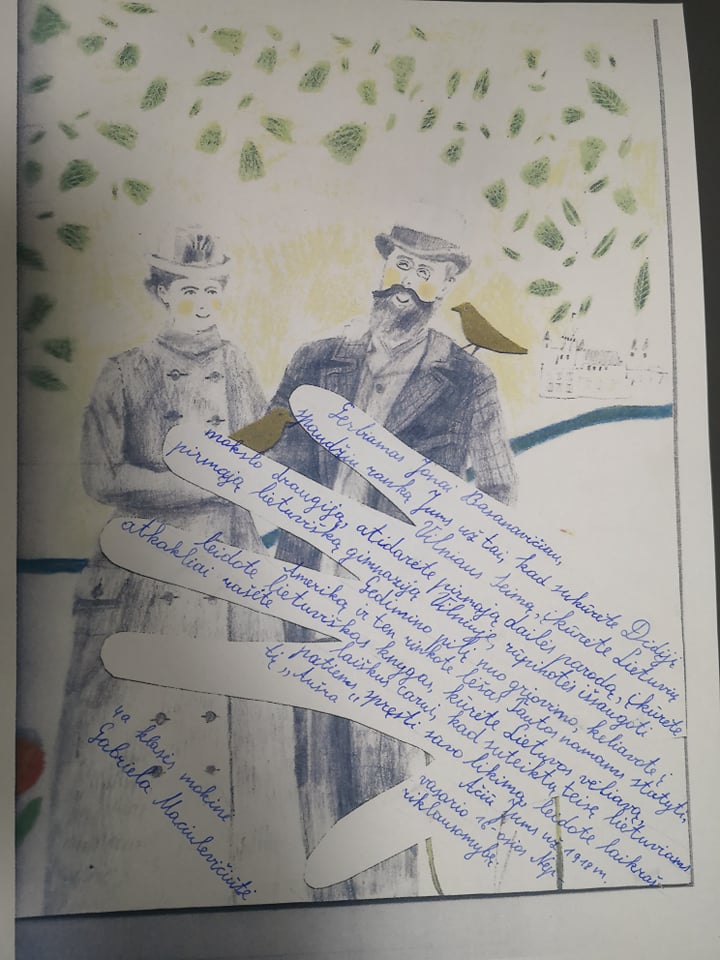 Gerbiamas Jonai Basanavičiau,
spaudžiu ranką Jums už tai, kad sukūrėte Didįjį
Vilniaus Seimą, įkūrėte Lietuvių
mokslo draugiją, atidarėte pirmąją dailės parodą, įkūrėte
pirmąją lietuvišką gimnaziją Vilniuje, rūpinotės išsaugoti
Gedimino pilį nuo griovimo, keliavote į
Ameriką ir ten rinkote lėšas Tautos namams statyti,
leidote lietuviškas knygas, kūrėte Lietuvos vėliavą,
atkakliai rašėte laiškus carui, kad suteiktų teisę lietuviams
patiems spręsti savo likimą, leidote laikraš-
tį „Aušra„
Ačiū Jums už 1918 m.
vasario 16-osios Nep
riklausomybę.
4a klasės mokinė
Gabriela Maciulevičiūtė